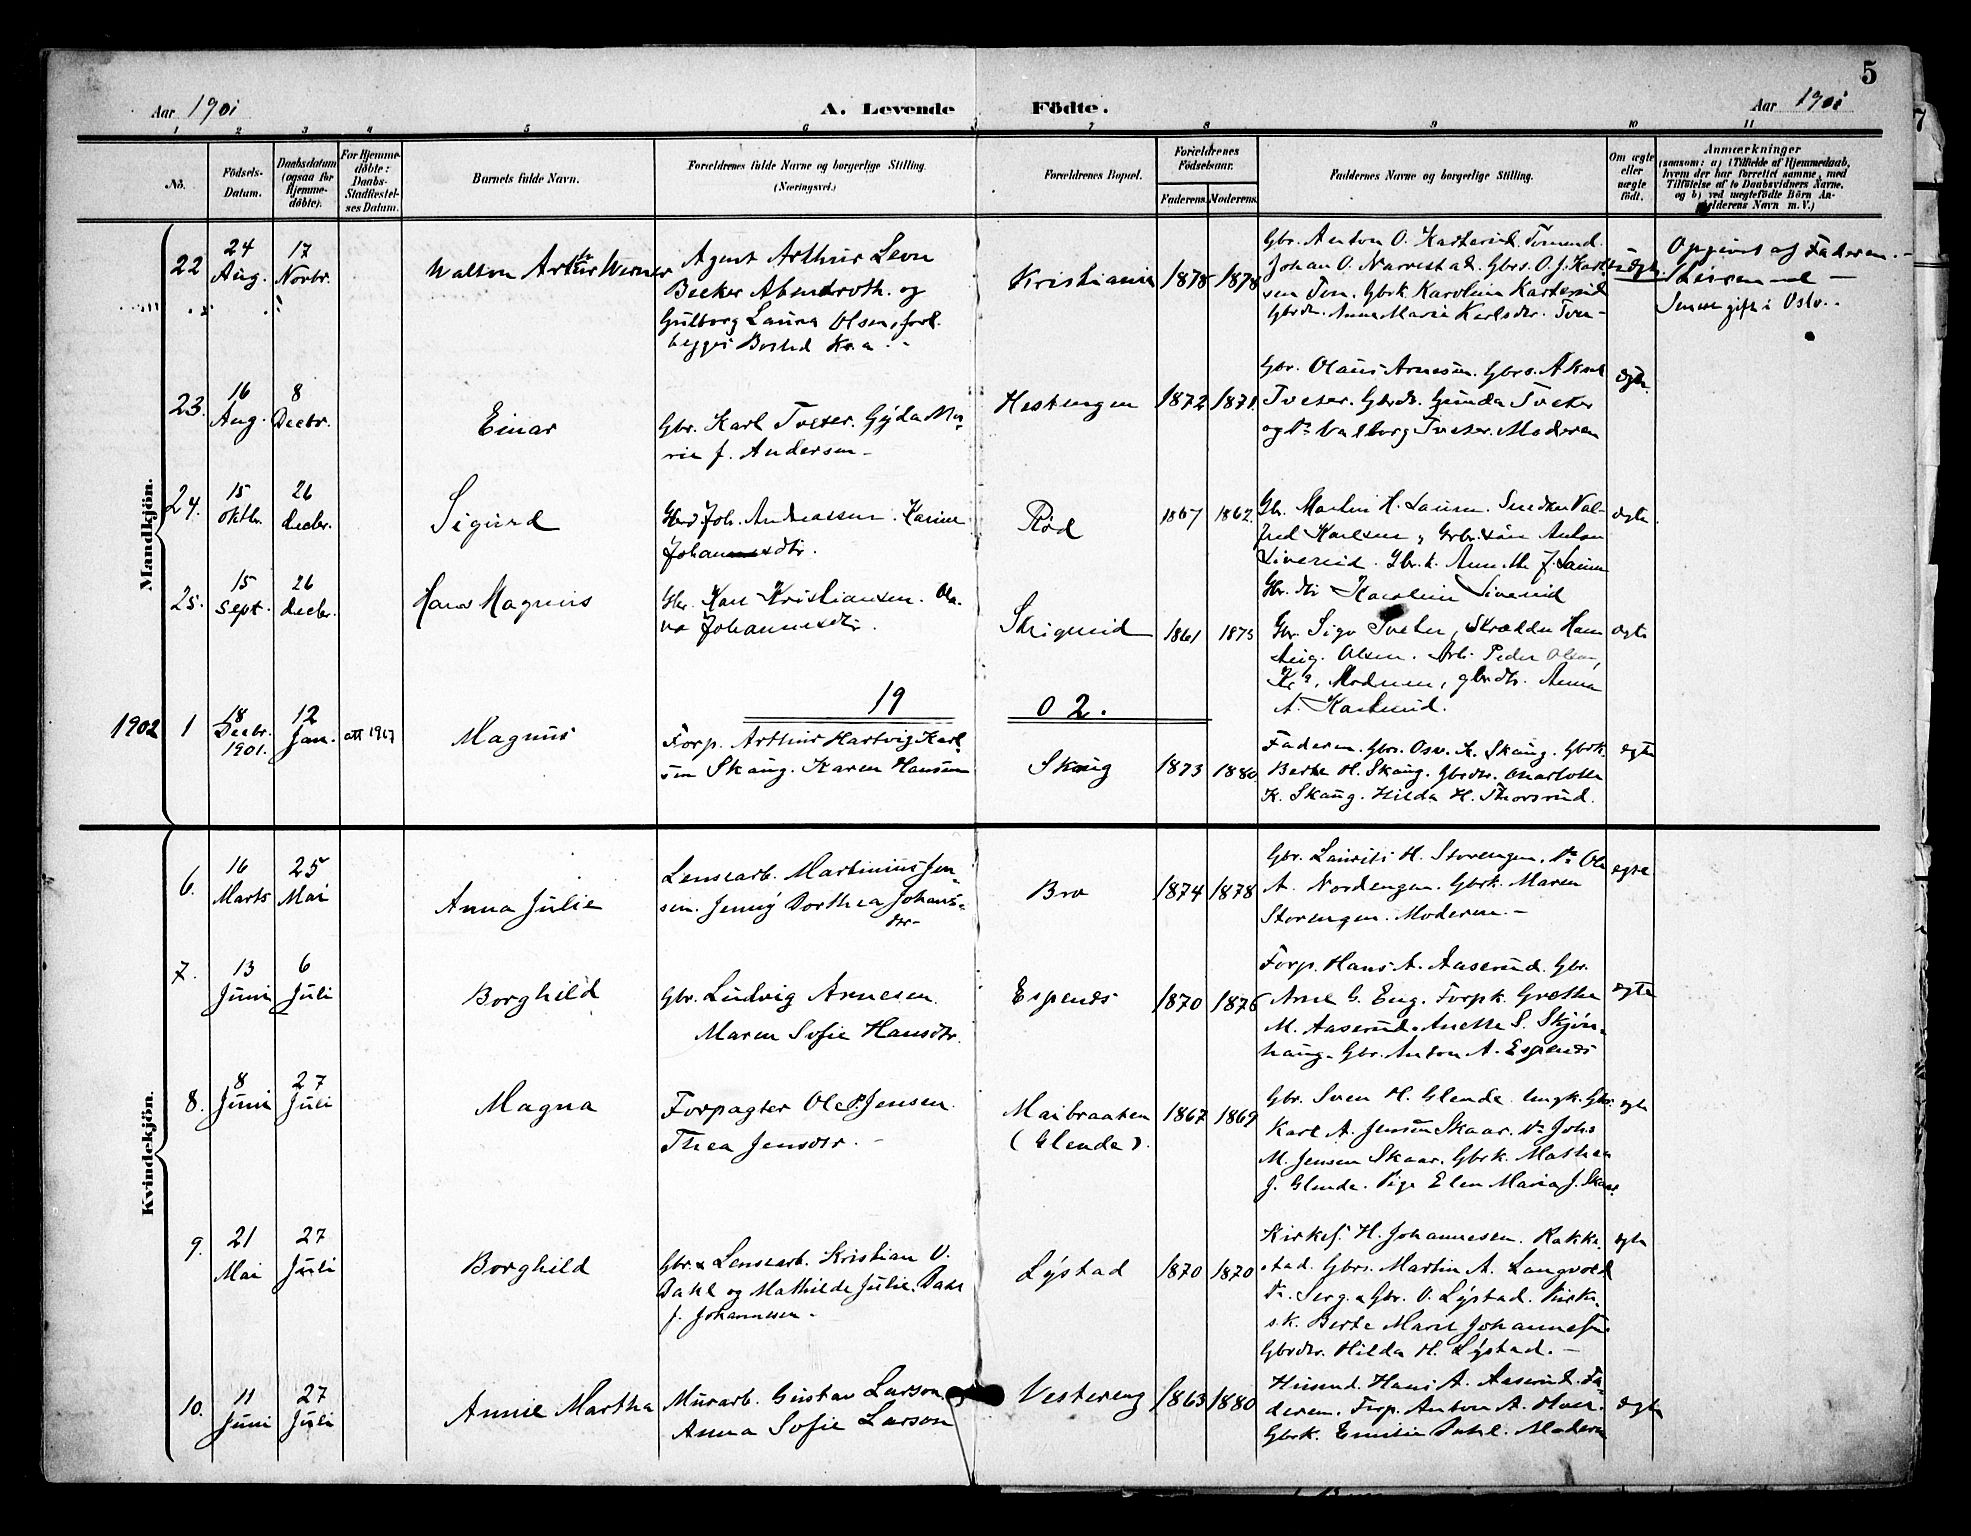 5
Aar 1901
A. Levende Födte.
Aar 1901
1 2 3 4 5 6 7 8 9 10 11
No.
Födsels-
Datum.
Daabsdatum
(ogsaa for
Hjemme-
döbte).
For Hjemme-
döbte:
Daabs-
Stadfæstel-
ses Datum.
Barnets fulde Navn.
Forældrenes fulde Navne og borgerlige Stilling.
(Næringsvei.)
Forældrenes Bopæl.
Forældrenes
Födselsaar.
Faderens. Moderens.
Faddernes Navne og borgerlige Stilling.
Om ægte
eller
uægte
født.
Anmærkninger
(saasom: a) i Tilfælde af Hjemmedaab,
hvem der har forrettet samme, med
Tilföielse af to Daabsvidners Navne,
og b) ved uægtefödte Börn An-
giverens Navn m. V.)
Mandkjön.
22
24
Aug.
17
Novbr.
Walton Arthur Werner
Agent Arthur Leon
Becker Abendroth. og
Gulborg Laura Olsen, forl.
begges Bosted Kr.a.
Kristiania
1878 1878
Gbr. Anton O. Karterud. Tomend.
Johan O. Narvestad. Gbrs. O. J. Karl
sen Tom. Gbrk. Karoline Karterud
Gbrdtr. Anna Maria Karlsdtr. Tven-
uægte.
Opgivet af Faderen.-
Senere gift i Oslo.
23.
16
Aug.
8
Decbr.
Einar
Gbr. Karl Tveter. Gyda Ma-
rie f. Andersen-
Hestengen
1872 1871.
Gbr. Olaus Arnesen. Gbrs. Aksel
Tveter. Gbrdtr. Gunda Tveter
og Do Valborg Tveter. Moderen
ægte.
24.
15
Oktbr.
26
decbr.
Sigurd
Gbr. Joh. Andreassen. Karine
Johannesdtr.
Röd
1867 1862.
Gbr. Martin H. Lauren. Snedker Val-
fred Karlsen, Grbr.søn Anton
Siverud. Gbr.k. Annette J. Lauren
Gbr.dtr Karoline Siverud
ægte.
25.
15
Sept.
26
decbr.
Hans Magnus
Gbr. Karl Kristiansen. Ola-
va Johannesdtr.
Skrigerud
1861 1873
Gbr. Sigv Tveter, Skrædder Hans
Aug. Olsen. Arb. Peder Olsen,
Kra, Moderen, gbrdtr. Anna
A. Karterud.
ægte
19 02.
1902
1
18
Decbr.
1901.
12
Jan.
att 1967
Magnus
Forp. Arthur Hartvig Karl
sen Skaug. Karen Hansen
Skaug
1873 1880
Faderen. Gbrs. Osv. K. Skaug. Gbrk.
Berte H. Skaug. Gbrdtr. Charlotte
K. Skaug. Hilda H. Thorsrud.
egte
Kvindekjön.
6.
16
Marts
25
Mai
Anna Julie
Lensearb. Martinius Jen-
sen. Jenny Dorthea Johans-
dtr-
Bro
1874 1878
Gbr. Laurits H. Storengen. Do Ole
A. Nordengen. Gbrk. Maren
Storengen. Moderen.-
egte
7.
13
Juni
6
Juli
Borghild
Gbr. Ludvig Arnesen
Maren Sofie Hansdtr.
Espenes
1870 1876
Forp. Hans A. Aaserud. Gbr.
Arne G. Eng. Forpk. Grethe
M. Aaserud. Anette S. Skjøn-
haug. Gbr. Anton A. Espenes
egte
8.
8
Juni
27
Juli
Magna
Forpagter Ole P. Jensen.
Thea Jensdtr.-
Maibraaten
(Glende).
1867 1869
Gbr. Sven H. Glende. Ungk. Gbr.
Karl A. Jensen Skaar. Do Johs
M. Jensen Skaar. Gbrk. Mathea
J. Glende. Pige Elen Maria J. Skaar.
egte
9.
21
Mai
27
Juli
Borghild
Gbr. & Lensearb. Kristian O.
Dahl og Mathilde Julie Dahl
f. Johannesen-
Lystad
1870 1870
Kirkes. H. Johannesen. Rakke-
stad. Gbrs. Martin A. Langvold
Do. Serg. & Gbr. O. Lystad. Kirke-
s.k. Berte Marie Johannesen
Gbrdtr. Hilda H. Lystad.-
egte
10.
11
Juni
27
Juli
Annie Martha
Murarb. Gustav Larson
Anna Sofie Larson
Vestereng
1863 1880
Husmd. Hans A. Aaserud. Fa-
deren. Forp. Anton A. Hoen.
Gbrk. Emilie Dahl. Moderen
ægte